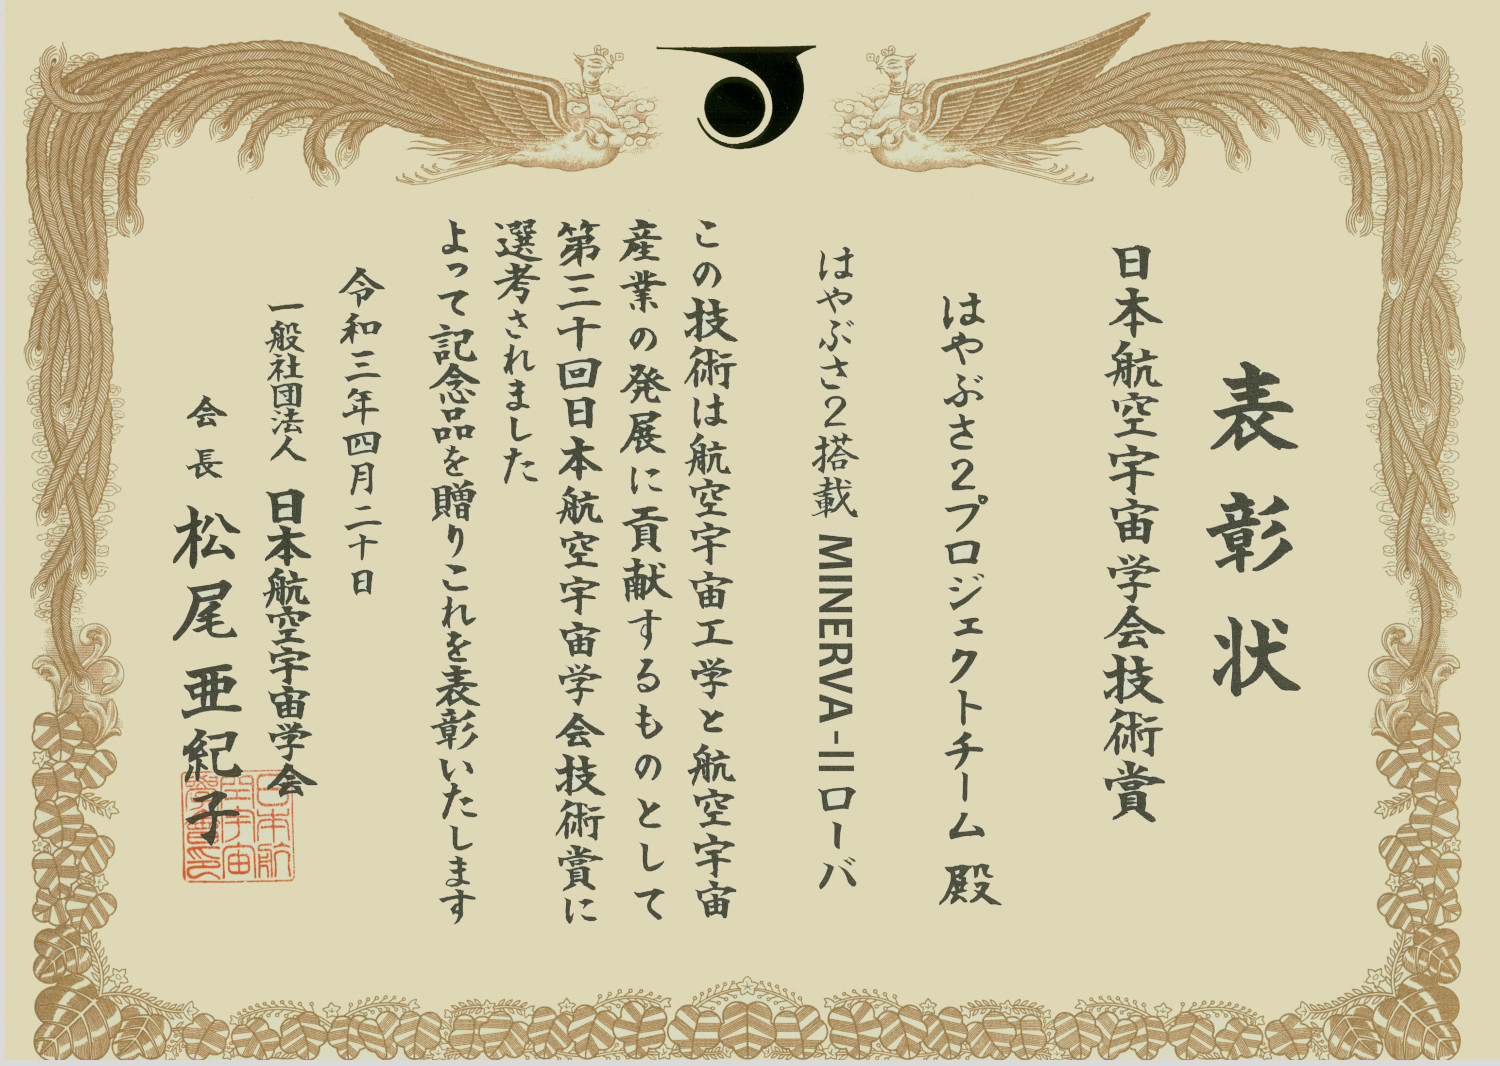 表彰状
日本航空宇宙学会技術賞
はやぶさ2プロジェクトチーム 殿
はやぶさ2搭載 MINERVA-IIローバ
この技術は航空宇宙工学と航空宇宙
産業の発展に貢献するものとして
第三十回日本航空宇宙学会技術賞に
選考されました
よって記念品を贈りこれを表彰いたします
令和三年四月二十日
一般社団法人 日本航空宇宙学会
会長 松尾亜紀子
日本航
空宇宙
學會印